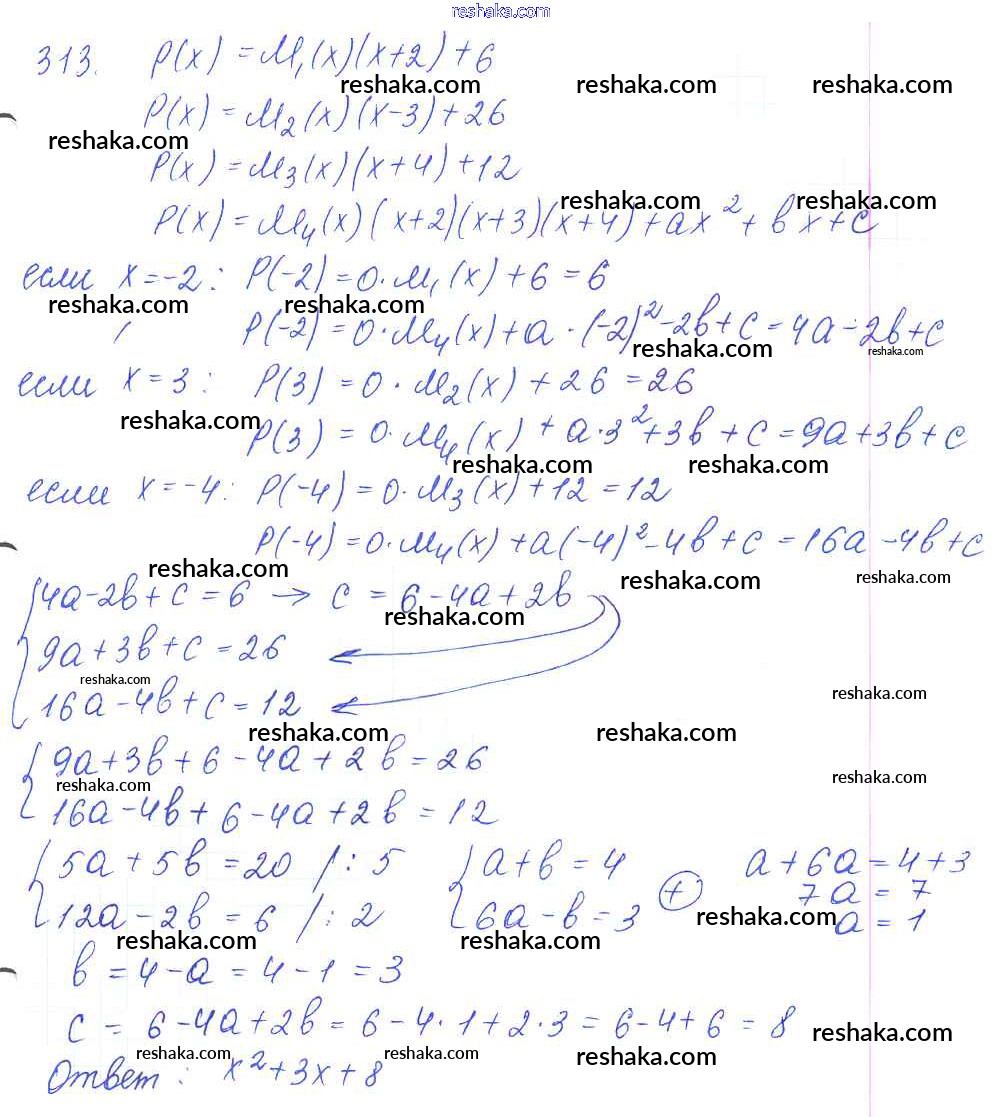 reshaka.com
313. P(x) = M₁(x)(x+2)+6
reshaka.com reshaka.com reshaka.com
P(x) = M₂(x)(x-3)+26
reshaka.com
P(x) = M₃(x)(x+4)+12
reshaka.com reshaka.com
P(x) = M₄(x)(x+2)(x+3)(x+4)+ax²+bx+c
если x=-2: P(-2)=0·M₁(x)+6=6
reshaka.com reshaka.com
P(-2)=0·M₄(x)+a·(-2)²-2b+c=4a-2b+c
reshaka.com reshaka.com
если x=3: P(3)=0·M₂(x)+26=26
reshaka.com
P(3)=0·M₄(x)+a·3²+3b+c=9a+3b+c
reshaka.com reshaka.com
если x=-4: P(-4)=0·M₃(x)+12=12
P(-4)=0·M₄(x)+a(-4)²-4b+c=16a-4b+c
reshaka.com reshaka.com reshaka.com
{4a-2b+c=6 → c=6-4a+2b
reshaka.com
9a+3b+c=26
reshaka.com reshaka.com
16a-4b+c=12
reshaka.com reshaka.com
{9a+3b+6-4a+2b=26
reshaka.com reshaka.com
16a-4b+6-4a+2b=12
{5a+5b=20 /:5 {a+b=4 a+6a=4+3
12a-2b=6 /:2 6a-b=3 ⊕ 7a=7
reshaka.com a=1
reshaka.com reshaka.com
b=4-a=4-1=3
c=6-4a+2b=6-4·1+2·3=6-4+6=8
reshaka.com
reshaka.com reshaka.com reshaka.com
Ответ: x²+3x+8